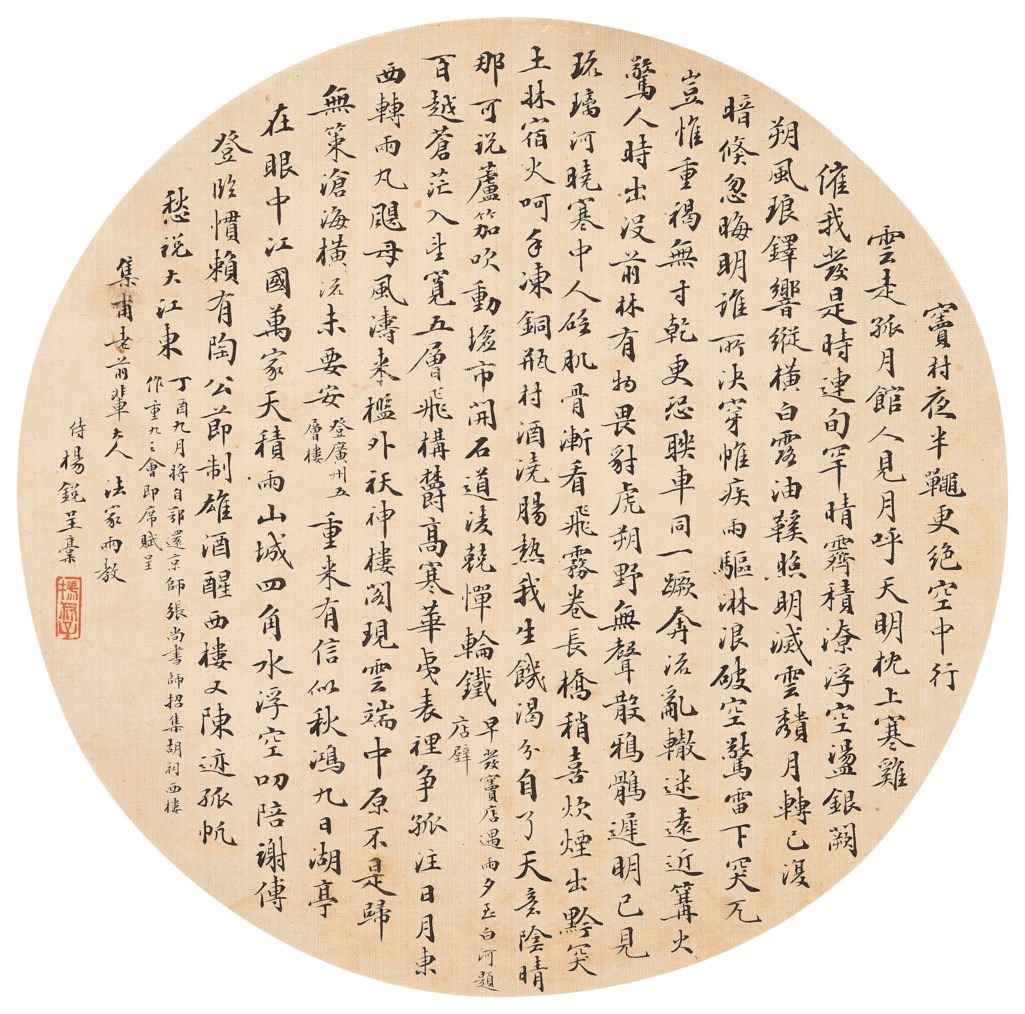 竇村夜半鼉更絕空中行
雲走孤月館人見月呼天明枕上寒雞
催我發是時連旬罕晴霽積潦浮空盪銀闕
朔風琅鐸響縱橫白露油鞵照明滅雲頹月轉已復
暗倏忽晦明誰所決穿帷疾雨驅淋浪破空驚雷下突兀
豈惟重褐無寸乾更恐映車同一蹶奔流亂轍迷遠近篝火
驚人時出沒前林有物畏豺虎朔野無聲散鴉鶻遲明已見
琉璃河曉寒中人砭肌骨漸看飛霧卷長橋稍喜炊煙出黔突
土牀宿火呵手凍銅瓶村酒澆腸熱我生饑渴分自了天意陰晴
那可說蘆笳吹動墟市開石道淩兢憚輪鐵 早發竇店遇雨夕至白河題
店壁
百越蒼茫入望寬五層飛構鬱高寒華夷表裡爭孤注日月東
西轉兩丸颶母風濤來檻外祅神樓閣現雲端中原不是歸
無策滄海橫流未要安 登廣州五
層樓 重來有信似秋鴻九日湖亭
在眼中江國萬家天積雨山城四角水浮空叨陪謝傅
登臨慣賴有陶公節制雄酒醒西樓又陳迹孤帆
愁說大江東 丁酉九月將自鄂還京師張尚書師招集胡祠西樓
作重九之會即席賦呈
集甫老前輩大人 法家兩教
侍楊銳呈藁